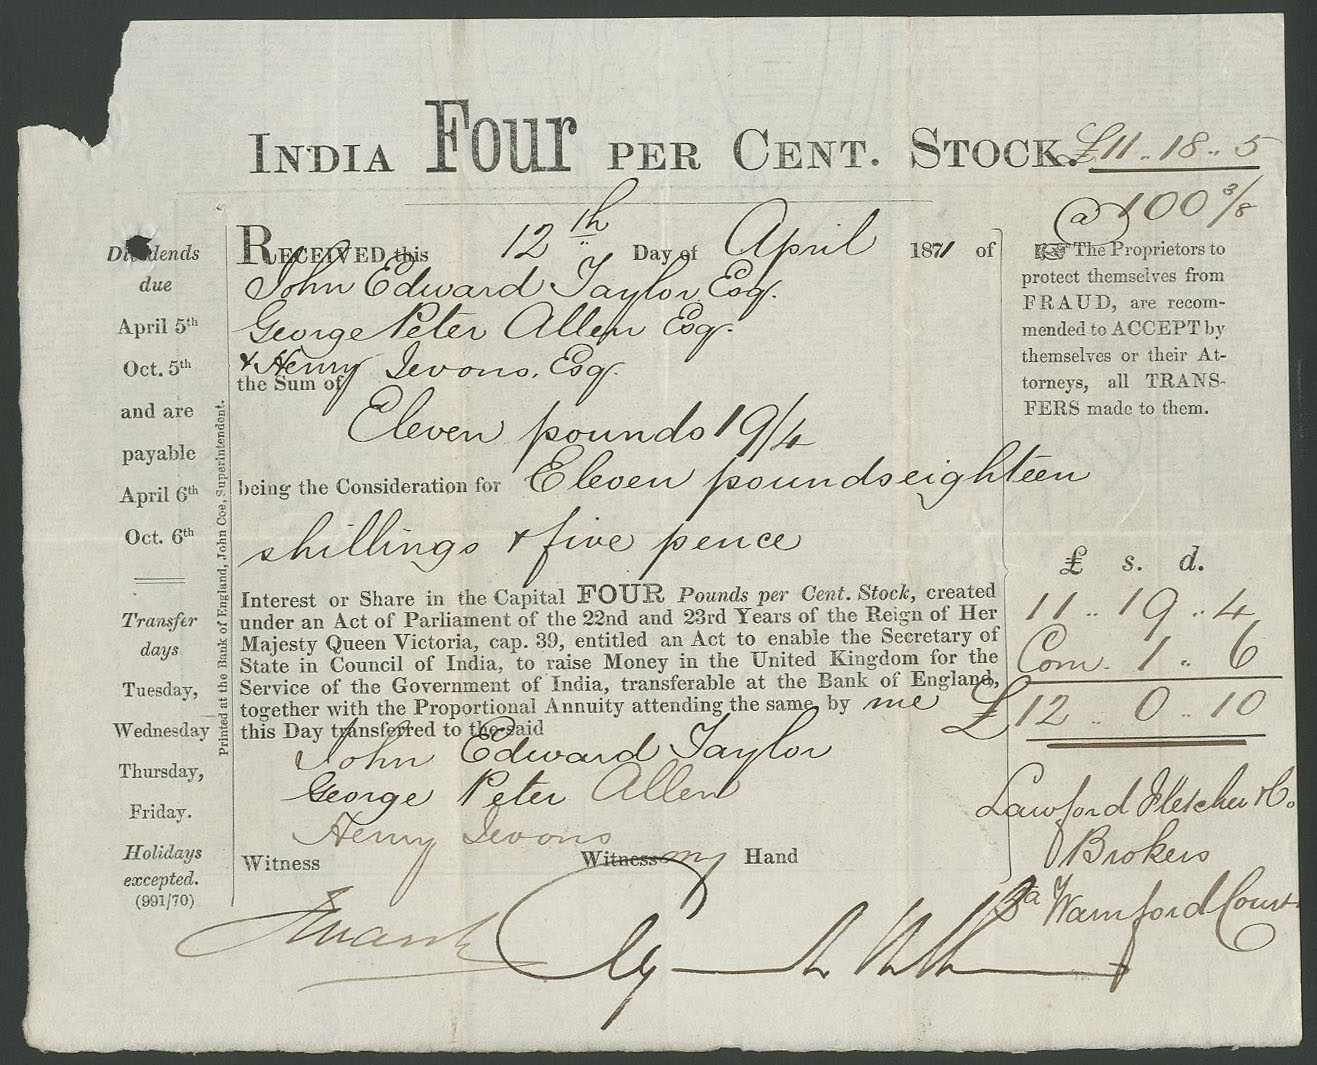 INDIA Four PER CENT. STOCK.
£11 .. 18 .. 5
@ 100 3/8
Dividends
due
April 5th
Oct. 5th
and are
payable
April 6th
Oct. 6th
Transfer
days
Tuesday,
Wednesday
Thursday,
Friday.
Holidays
excepted.
(991/70)
Printed at the Bank of England, John Coe, Superintendent.
RECEIVED this 12th Day of April 1871 of
John Edward Taylor Esq.
George Peter Allen Esq.
& Henry Jevons, Esq.
the Sum of
Eleven pounds 19/4
being the Consideration for Eleven pounds eighteen
shillings & five pence
Interest or Share in the Capital FOUR Pounds per Cent. Stock, created
under an Act of Parliament of the 22nd and 23rd Years of the Reign of Her
Majesty Queen Victoria, cap. 39, entitled an Act to enable the Secretary of
State in Council of India, to raise Money in the United Kingdom for the
Service of the Government of India, transferable at the Bank of England,
together with the Proportional Annuity attending the same by me
this Day transferred to the said
John Edward Taylor
George Peter Allen
Henry Jevons
Witness Witness my Hand
☞ The Proprietors to
protect themselves from
FRAUD, are recom-
mended to ACCEPT by
themselves or their At-
torneys, all TRANS-
FERS made to them.
£ s. d.
11 .. 19 .. 4
Com. 1 .. 6
£12 .. 0 .. 10
Lawford Fletcher & Co.
Brokers
Warnford Court